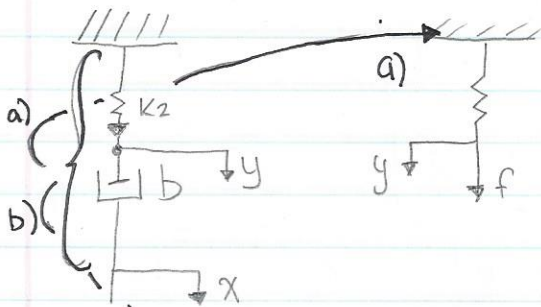 a)
K2
y
b
b)
x
a)
y
f